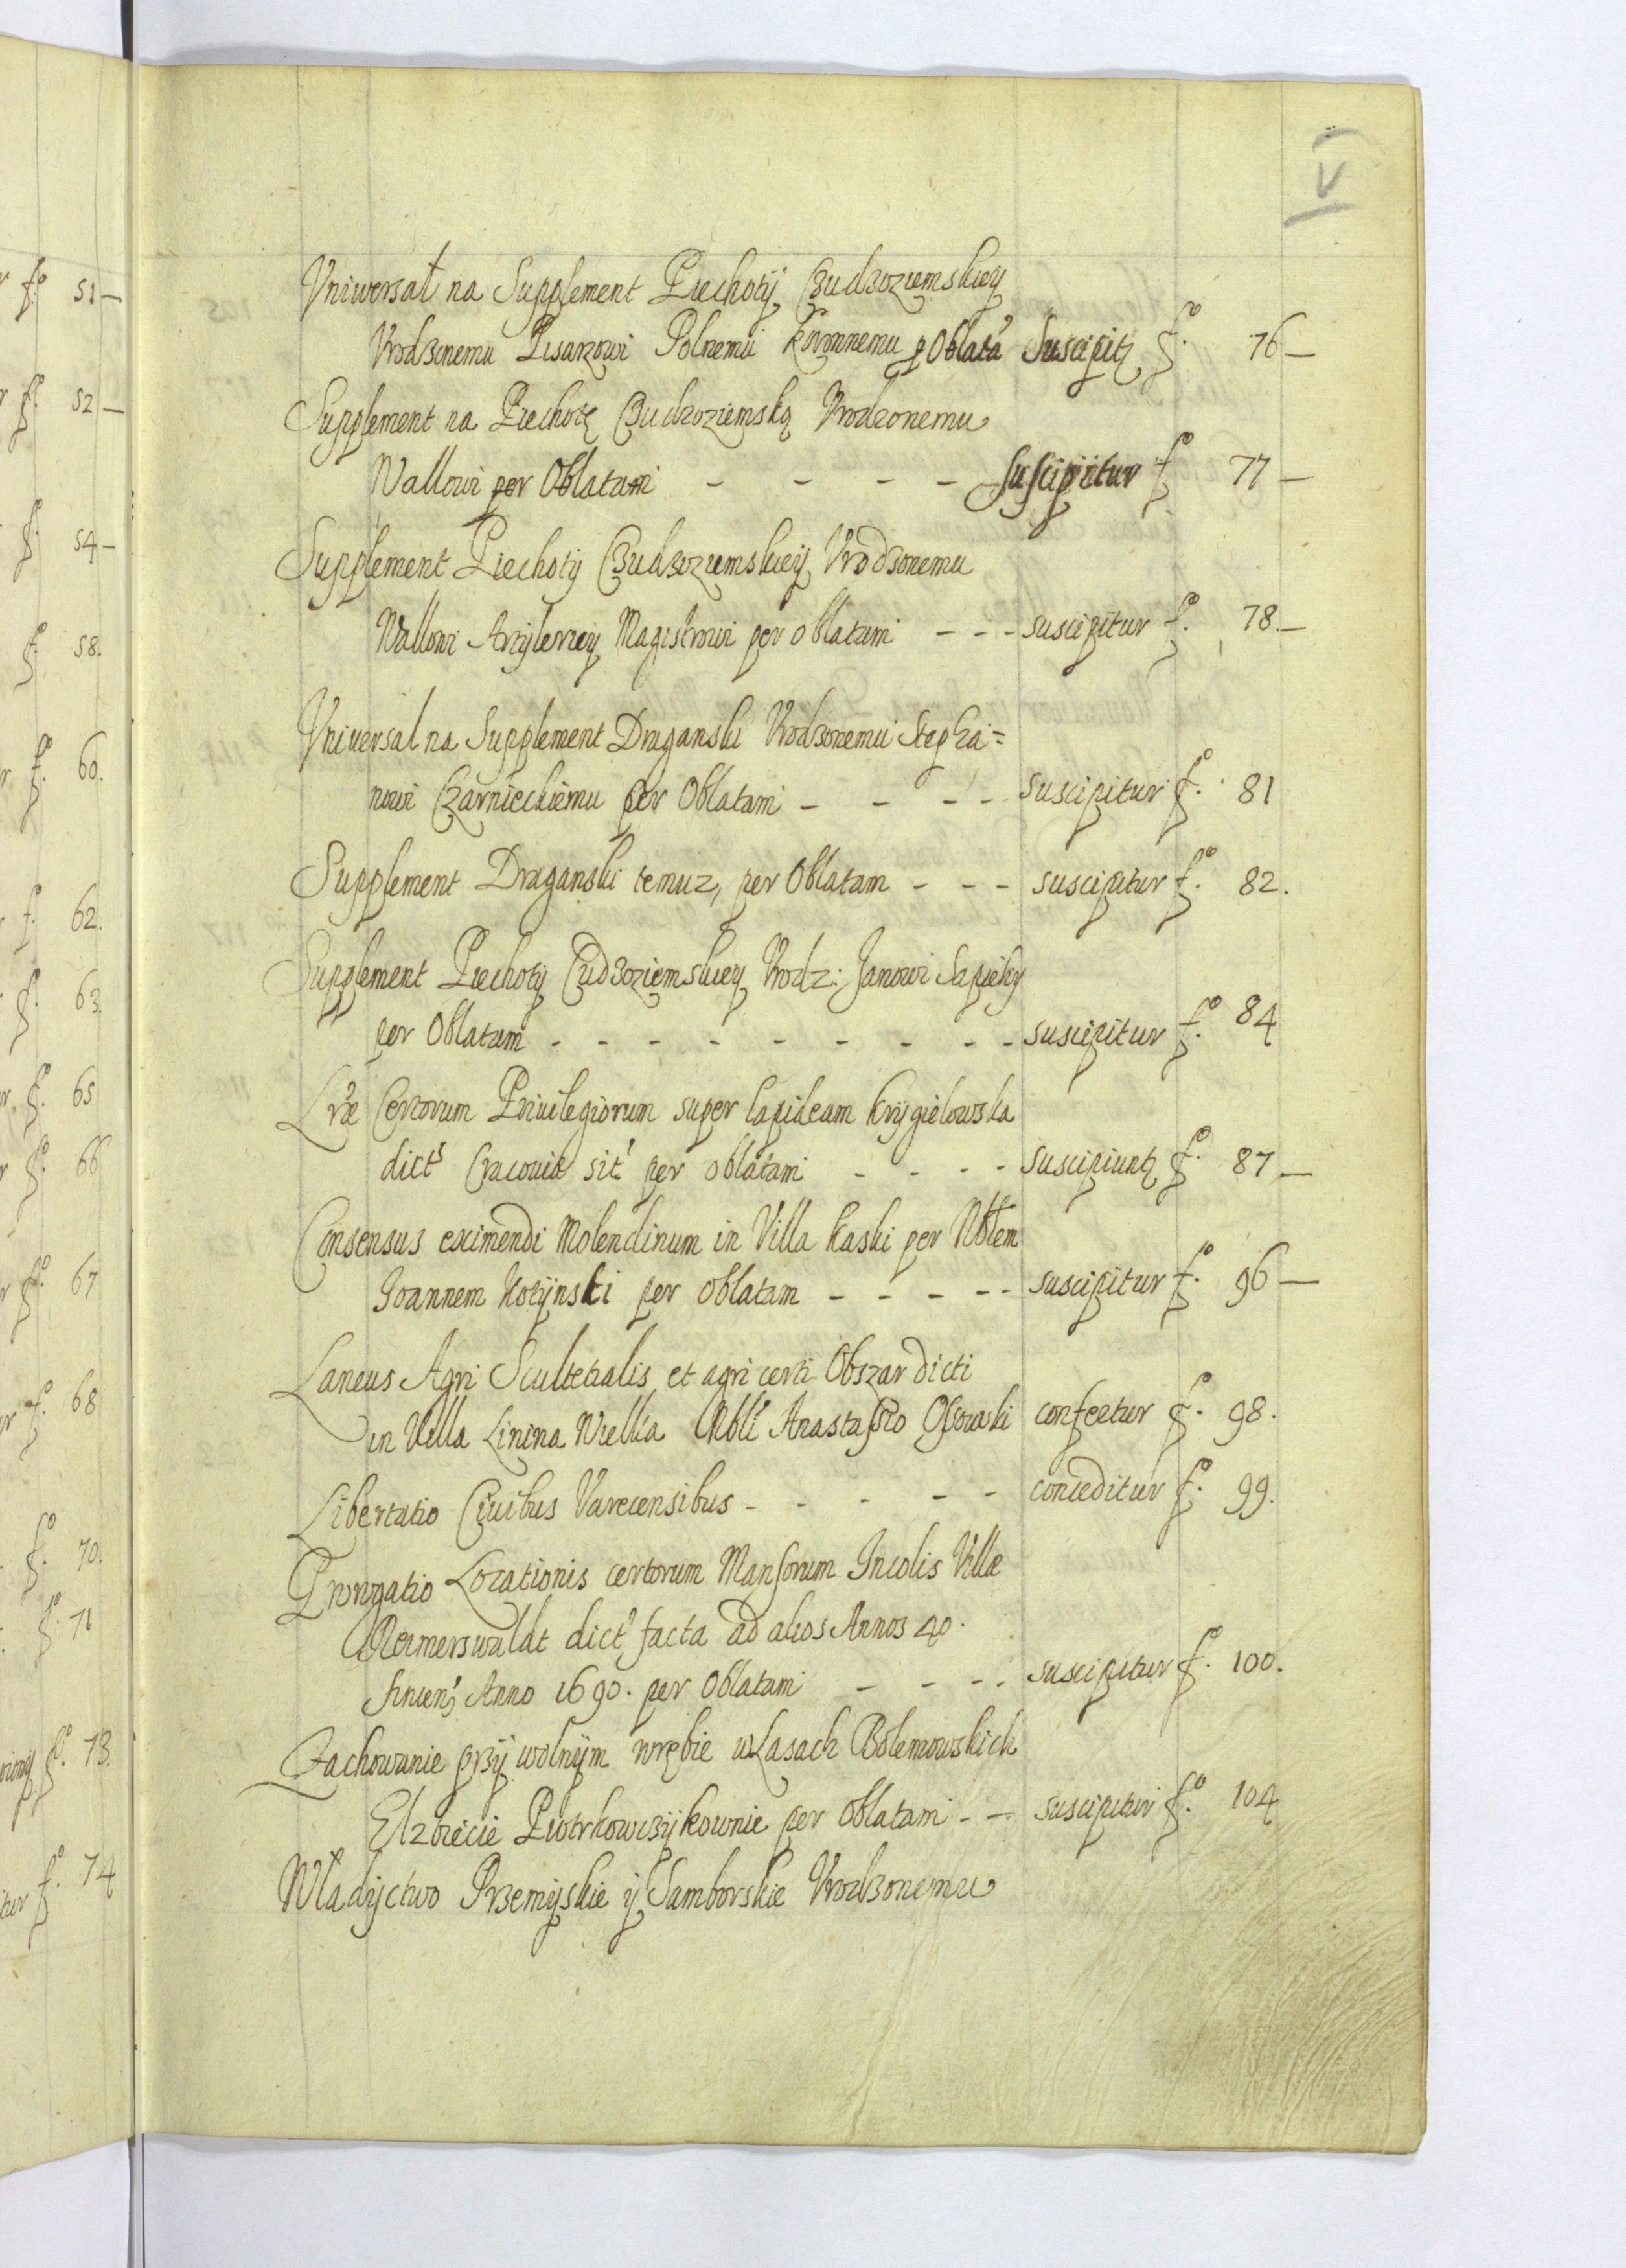 V
Vniwersał na Supplement Piechotÿ Cudzoziemskieÿ
Vrodzonemu Pisarzowi Polnemu koronnemu p Oblatã Suscipitr fo. 76 —
Supplement na Piechotę Cudzoziemską Vrodzonemu
Wallowi per Oblatam - - - - suscipitur fo 77 —
Supplement Piechotÿ Cudzoziemskieÿ Vrodzonemu
Wallowi Artÿlerieÿ Magistrowi per oblatam - - - suscipitur fo. 78. —
Vniuersal na Supplement Draganski Vrodzonemu Stepha=
nowi Czarnieckiemu per Oblatam - - - - suscipitur fo. 81
Supplement Draganski temuz, per Oblatam - - - suscipitur fo. 82.
Supplement Piechotÿ Cudzoziemskieÿ Vrodz: Janowi Sapieÿ
per Oblatam - - - - - - - - - suscipitur fo. 84
Lræ Certorum Priuilegiorum super lapideam krÿgielowska
dict' Cracouiæ sit' per oblatam - - - - suscipiuntr fo. 87 —
Consensus eximendi Molendinum in Villa kaski per Nblem
Joannem kotÿnski per oblatam - - - - - suscipitur fo. 96 —
Laneus Agri Scultetialis et agri certi Obszar dicti
in Villa Linina Wielka Nbli Anastasio Ossowski confertur fo. 98.
Libertatio Ciuibus Varecensibus - - - - - conceditur fo. 99.
Prorogatio Locationis certorum Mansorum Incolis Villæ
Reimerswaldt dict' facta ad alios Annos 40.
finien' Anno 1690. per Oblatam - - - - suscipitur fo. 100.
Zachowanie przÿ wolnÿm wrębie w Lasach Bolemowskich
Elzbiecie Piotrkowczÿkownie per Oblatam - - suscipitur fo. 104
Władÿctwo Przemÿskie ÿ Samborskie Vrodzonemu
fo. 51 —
fo. 52 —
fo. 54 —
fo. 58.
fo. 60.
f. 62.
fo. 63.
fo. 65
fo. 66
fo. 67
fo. 68
fo. 70.
fo. 71
fo. 73.
fo. 74